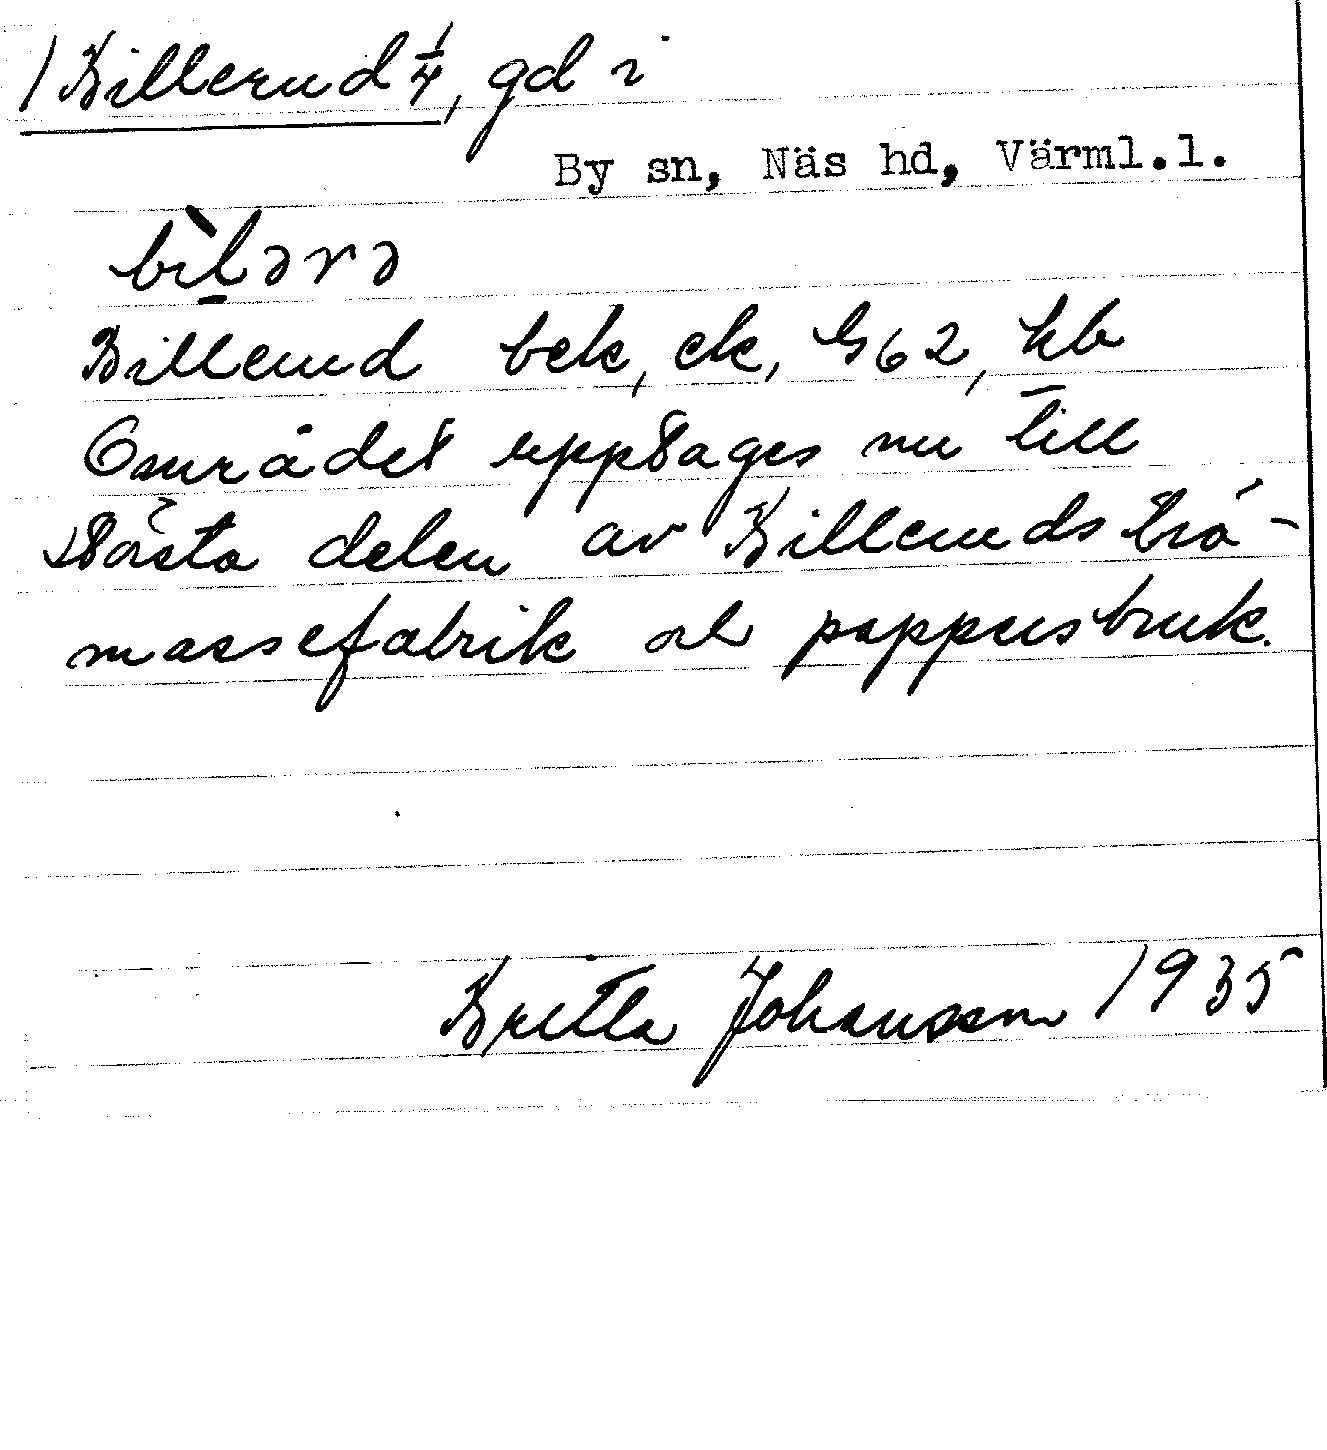 1 Billerud 1/4, gd i
By sn, Näs hd, Värml.l.
bìlərə
Billerud bek, ek, G 62, kb
Området upptages nu till
största delen av Billeruds trä-
massefabrik och pappersbruk.
Britta Johansson 1935